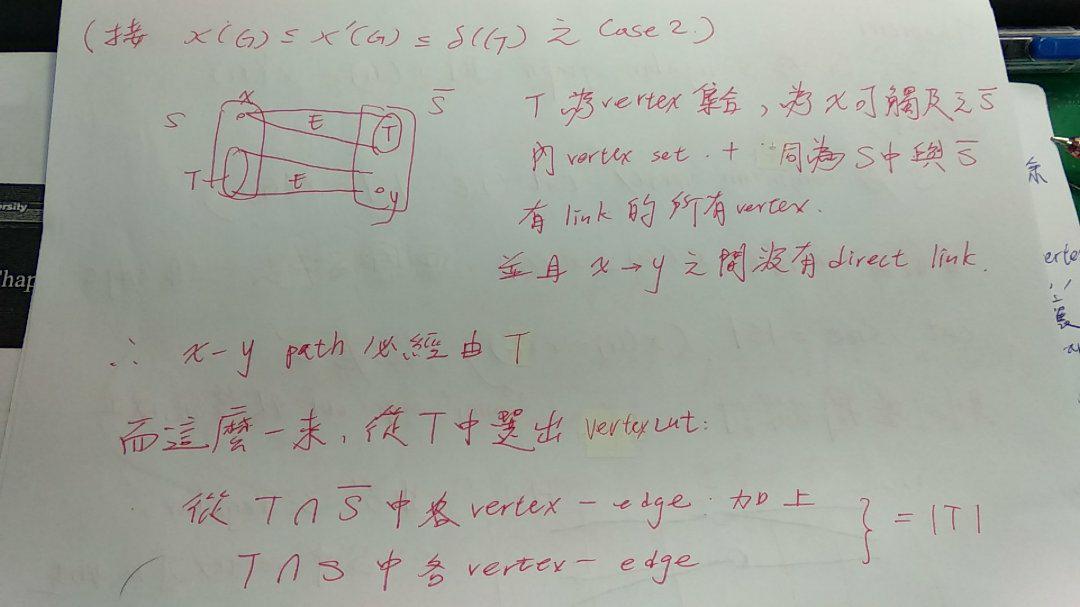 (接 x(G) ≤ x'(G) ≤ δ(G) 之 Case 2.)
x
S
E
T
S̅
T
E
y
T 為 vertex 集合, 為 x 可觸及之 S̅
內 vertex set. + 同為 S 中與 S̅
有 link 的所有 vertex.
並且 x → y 之間沒有 direct link.
∴ x-y path 必經由 T
而這麼一来, 從 T 中選出 vertex cut:
從 T ∩ S̅ 中各 vertex - edge. 加上
T ∩ S 中各 vertex - edge
} = |T|
ersity
Chap
余
erte